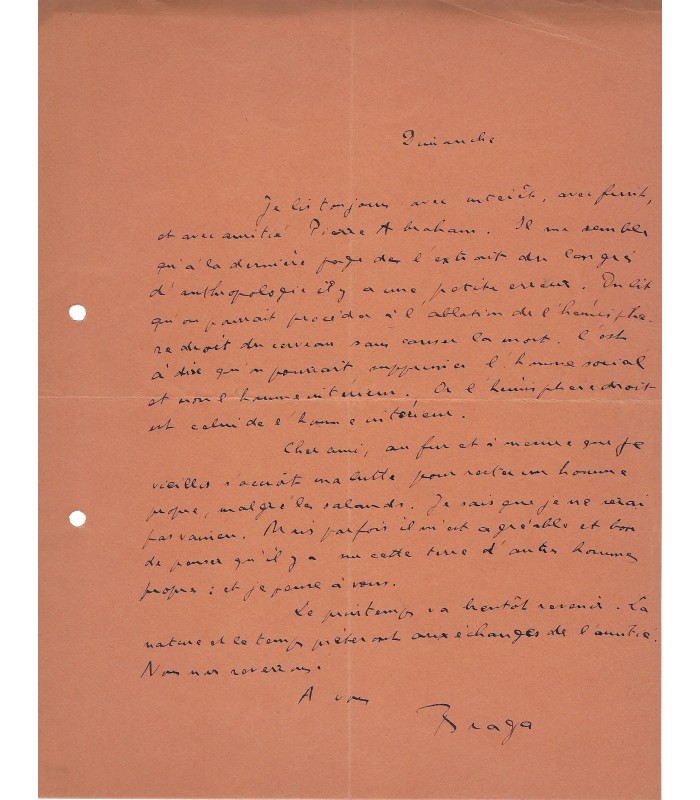 Dimanche
Je lis toujours avec intérêt, avec fruit,
et avec amitié Pierre Abraham. Il me semble
qu'à la dernière page de l'extrait du Congrès
d'anthropologie il y a une petite erreur. On lit
qu'on pourrait procéder à l'ablation de l'hémisphè-
re droit du cerveau sans causer la mort. C'est
à dire qu'on pourrait supprimer l'homme social
et non l'homme intérieur. Or l'hémisphère droit
est celui de l'homme intérieur.
Cher ami, au fur et à mesure que je
vieillis s'accroît ma lutte pour rester un homme
propre, malgré les salauds. Je sais que je ne serai
pas vaincu. Mais parfois il m'est agréable et bon
de penser qu'il y a sur cette terre d'autres hommes
propres ; et je pense à vous.
Le printemps va bientôt revenir. La
nature et le temps prêteront aux échanges de l'amitié.
Nous nous reverrons.
A vous
Braga